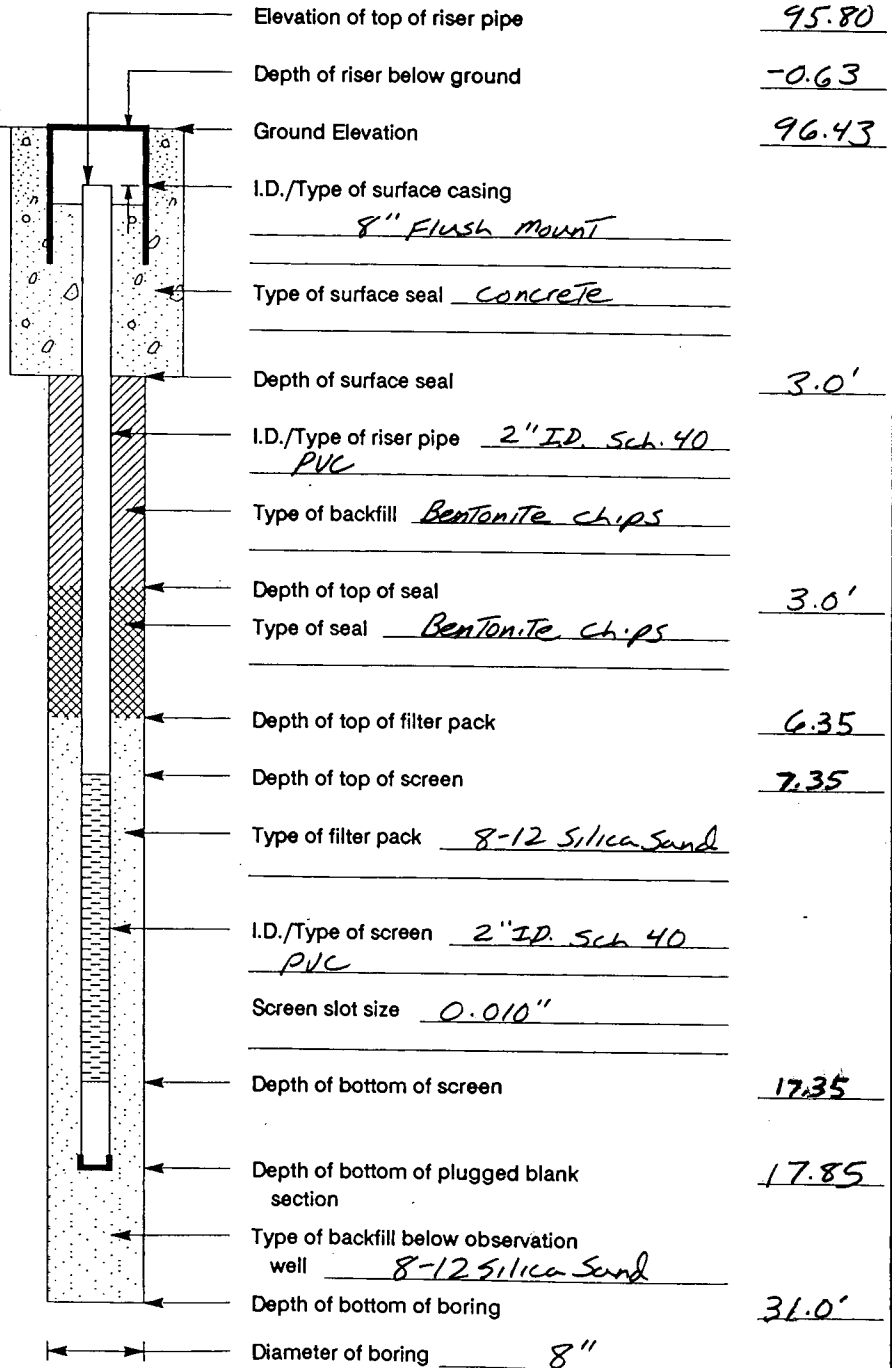 Elevation of top of riser pipe 95.80
Depth of riser below ground -0.63
Ground Elevation 96.43
I.D./Type of surface casing
8" Flush Mount
Type of surface seal Concrete
Depth of surface seal 3.0'
I.D./Type of riser pipe 2" I.D. Sch. 40
PVC
Type of backfill Bentonite chips
Depth of top of seal 3.0'
Type of seal Bentonite chips
Depth of top of filter pack 6.35
Depth of top of screen 7.35
Type of filter pack 8-12 Silica Sand
I.D./Type of screen 2" I.D. Sch 40
PVC
Screen slot size 0.010"
Depth of bottom of screen 17.35
Depth of bottom of plugged blank 17.85
section
Type of backfill below observation
well 8-12 Silica Sand
Depth of bottom of boring 31.0'
Diameter of boring 8"